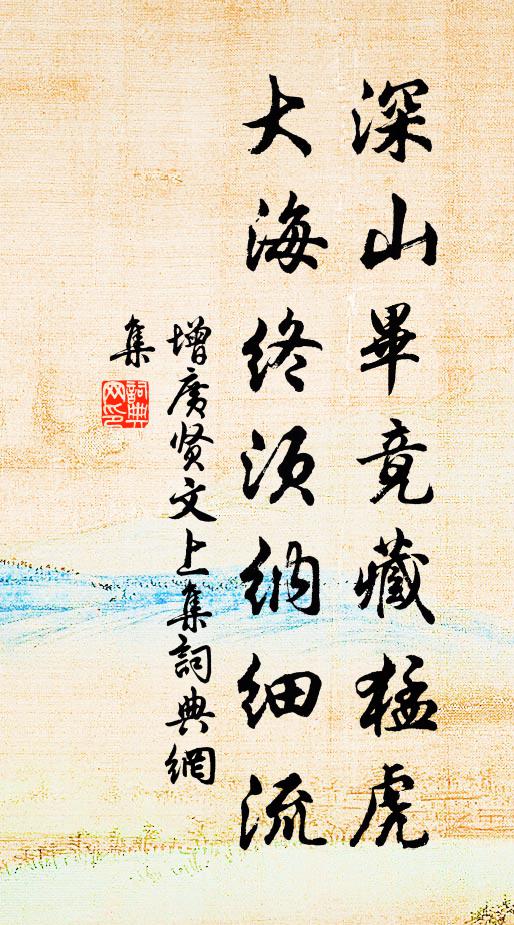 深山畢竟藏猛虎
大海终须纳细流
增广贤文上集詞典網
集
詞典网印